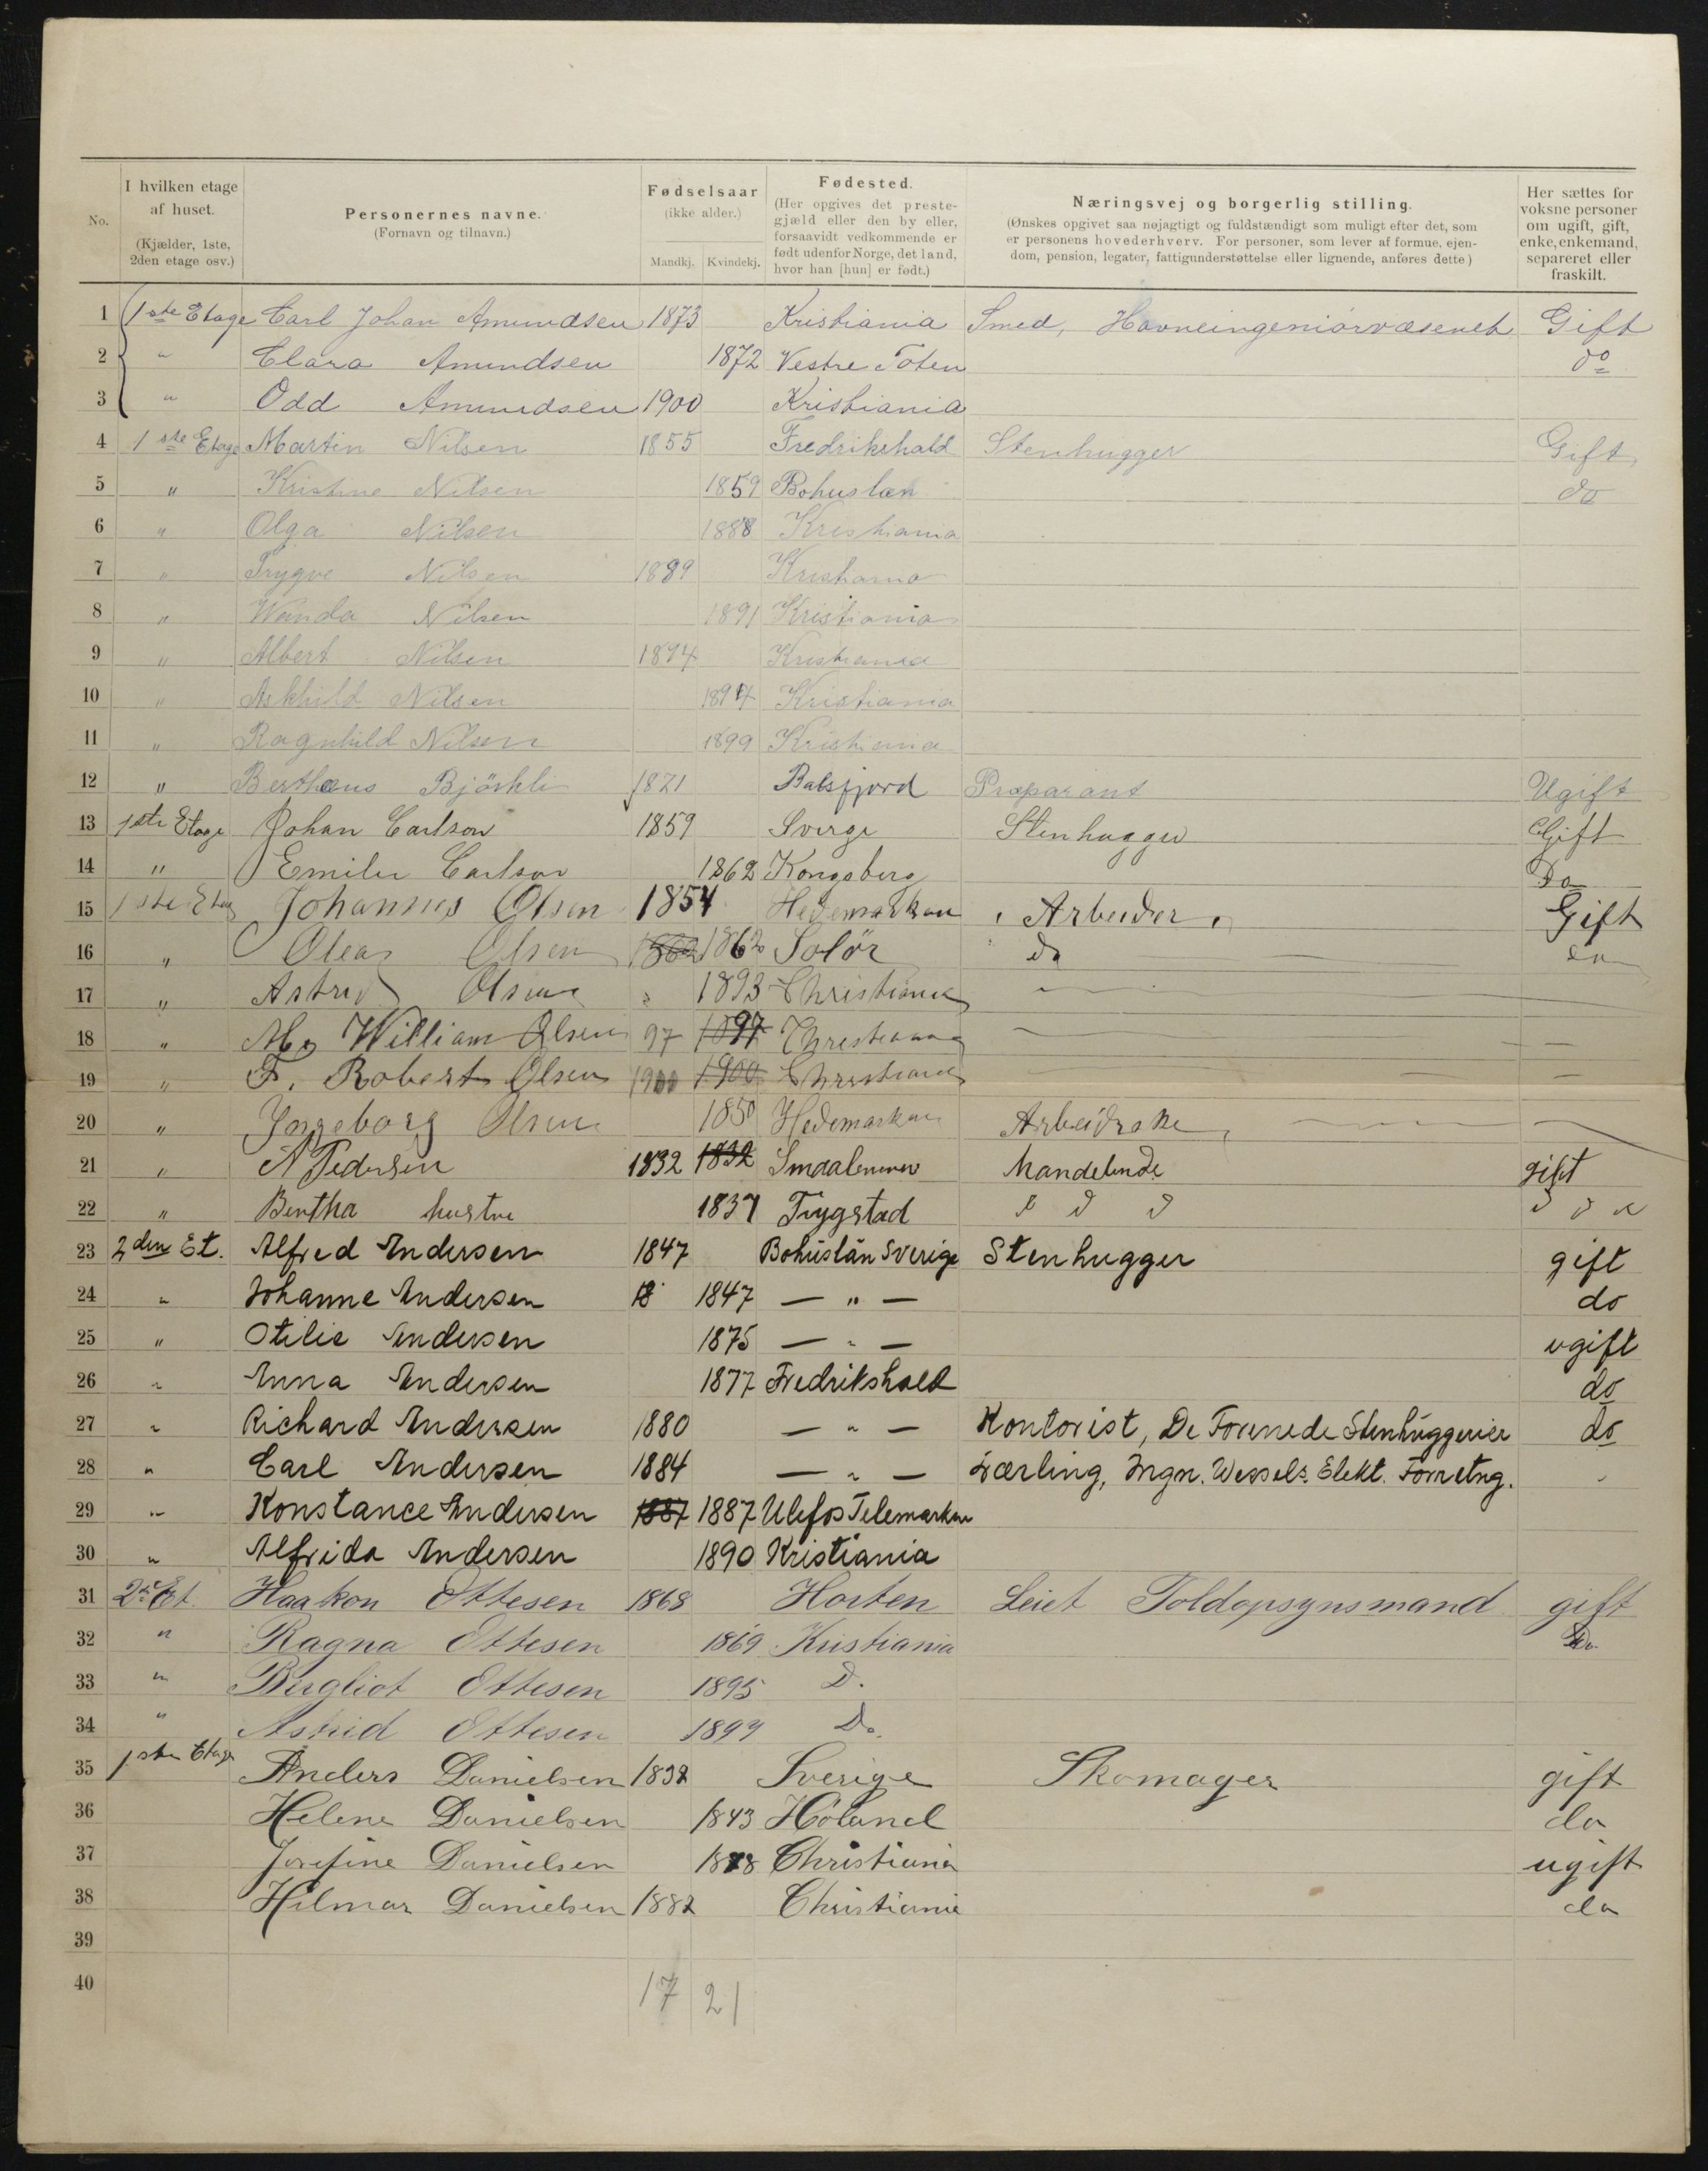 No.
I hvilken etage af huset. (Kjælder, 1ste, 2den etage osv.)
Personernes navne. (Fornavn og tilnavn.)
Fødselsaar (ikke alder.) Mandkj. Kvindekj.
Fødested. (Her opgives det prestegjæld eller den by eller, forsaavidt vedkommende er født udenfor Norge, det land, hvor han [hun] er født.)
Næringsvej og borgerlig stilling. (Ønskes opgivet saa nøjagtigt og fuldstændigt som muligt efter det, som er personens hovederhverv. For personer, som lever af formue, ejendom, pension, legater, fattigunderstøttelse eller lignende, anføres dette)
Her sættes for voksne personer om ugift, gift, enke, enkemand, separeret eller fraskilt.
1 1ste Etage Carl Johan Amundsen 1873 Kristiania Smed, Havneingeniörvæsenet Gift
2 " Clara Amundsen 1872 Vestre Toten do
3 " Odd Amundsen 1900 Kristiania
4 1ste Etage Martin Nilsen 1855 Fredrikshald Stenhugger Gift
5 " Kristine Nilsen 1859 Bohuslæn do
6 " Olga Nilsen 1888 Kristiania
7 " Trygve Nilsen 1889 Kristiania
8 " Wanda Nilsen 1891 Kristiania
9 " Albert Nilsen 1894 Kristiania
10 " Askhild Nilsen Kristiania
11 " Ragnhild Nilsen 1899 Kristiania
12 " Bertheus Björkli Balsfjord Præparant Ugift
13 1ste Etage Johan Carlson 1859 Sverge Stenhugger Gift
14 " Emilie Carlson 1862 Kongsberg Do
15 1ste Etag Johannes Olsen 1854 Hedemarken Arbeider Gift
16 " Olea Olsen 1862 Solör do do
17 " Astrid Olsen 1893 Christiania
18 " William Olsen 97 1897 Christiania
19 " F. Robert Olsen 1900 1900 Christiania
20 " Ingeborg Olsen 1850 Hedemarken Arbeiderske
21 " A Pedersen 1832 1832 Smaalenene Handelende gift
22 " Bertha hustru 1837 Trygstad
23 2den Et. Alfred Andersen 1847 Bohuslän Sverige Stenhugger gift
24 " Johanne Andersen 18 1847 — " — do
25 " Otilie Andersen 1875 — " — ugift
26 " Anna Andersen 1877 Fredrikshald do
27 " Richard Andersen 1880 — " — Kontorist, De Forenede Stenhuggerier do
28 " Carl Andersen 1884 — " — Lærling, Ingn. Wessels. Elekt. Forretng. "
29 " Konstance Andersen 1887 1887 Ulefos Telemarken
30 " Alfrida Andersen 1890 Kristiania
31 2den Et. Haakon Ottesen 1868 Horten Leiet Toldopsynsmand gift
32 " Ragna Ottesen 1869 Kristiania Do
33 " Bergliot Ottesen 1895 D.
34 " Astrid Ottesen 1899 Do
35 1ste Etage Anders Danielsen 1832 Sverige Skomager gift
36 Helene Danielsen 1843 Höland do
37 Josefine Danielsen 1878 Christiania ugift
38 Hilmar Danielsen 1882 Christiania do
39
40
17 21